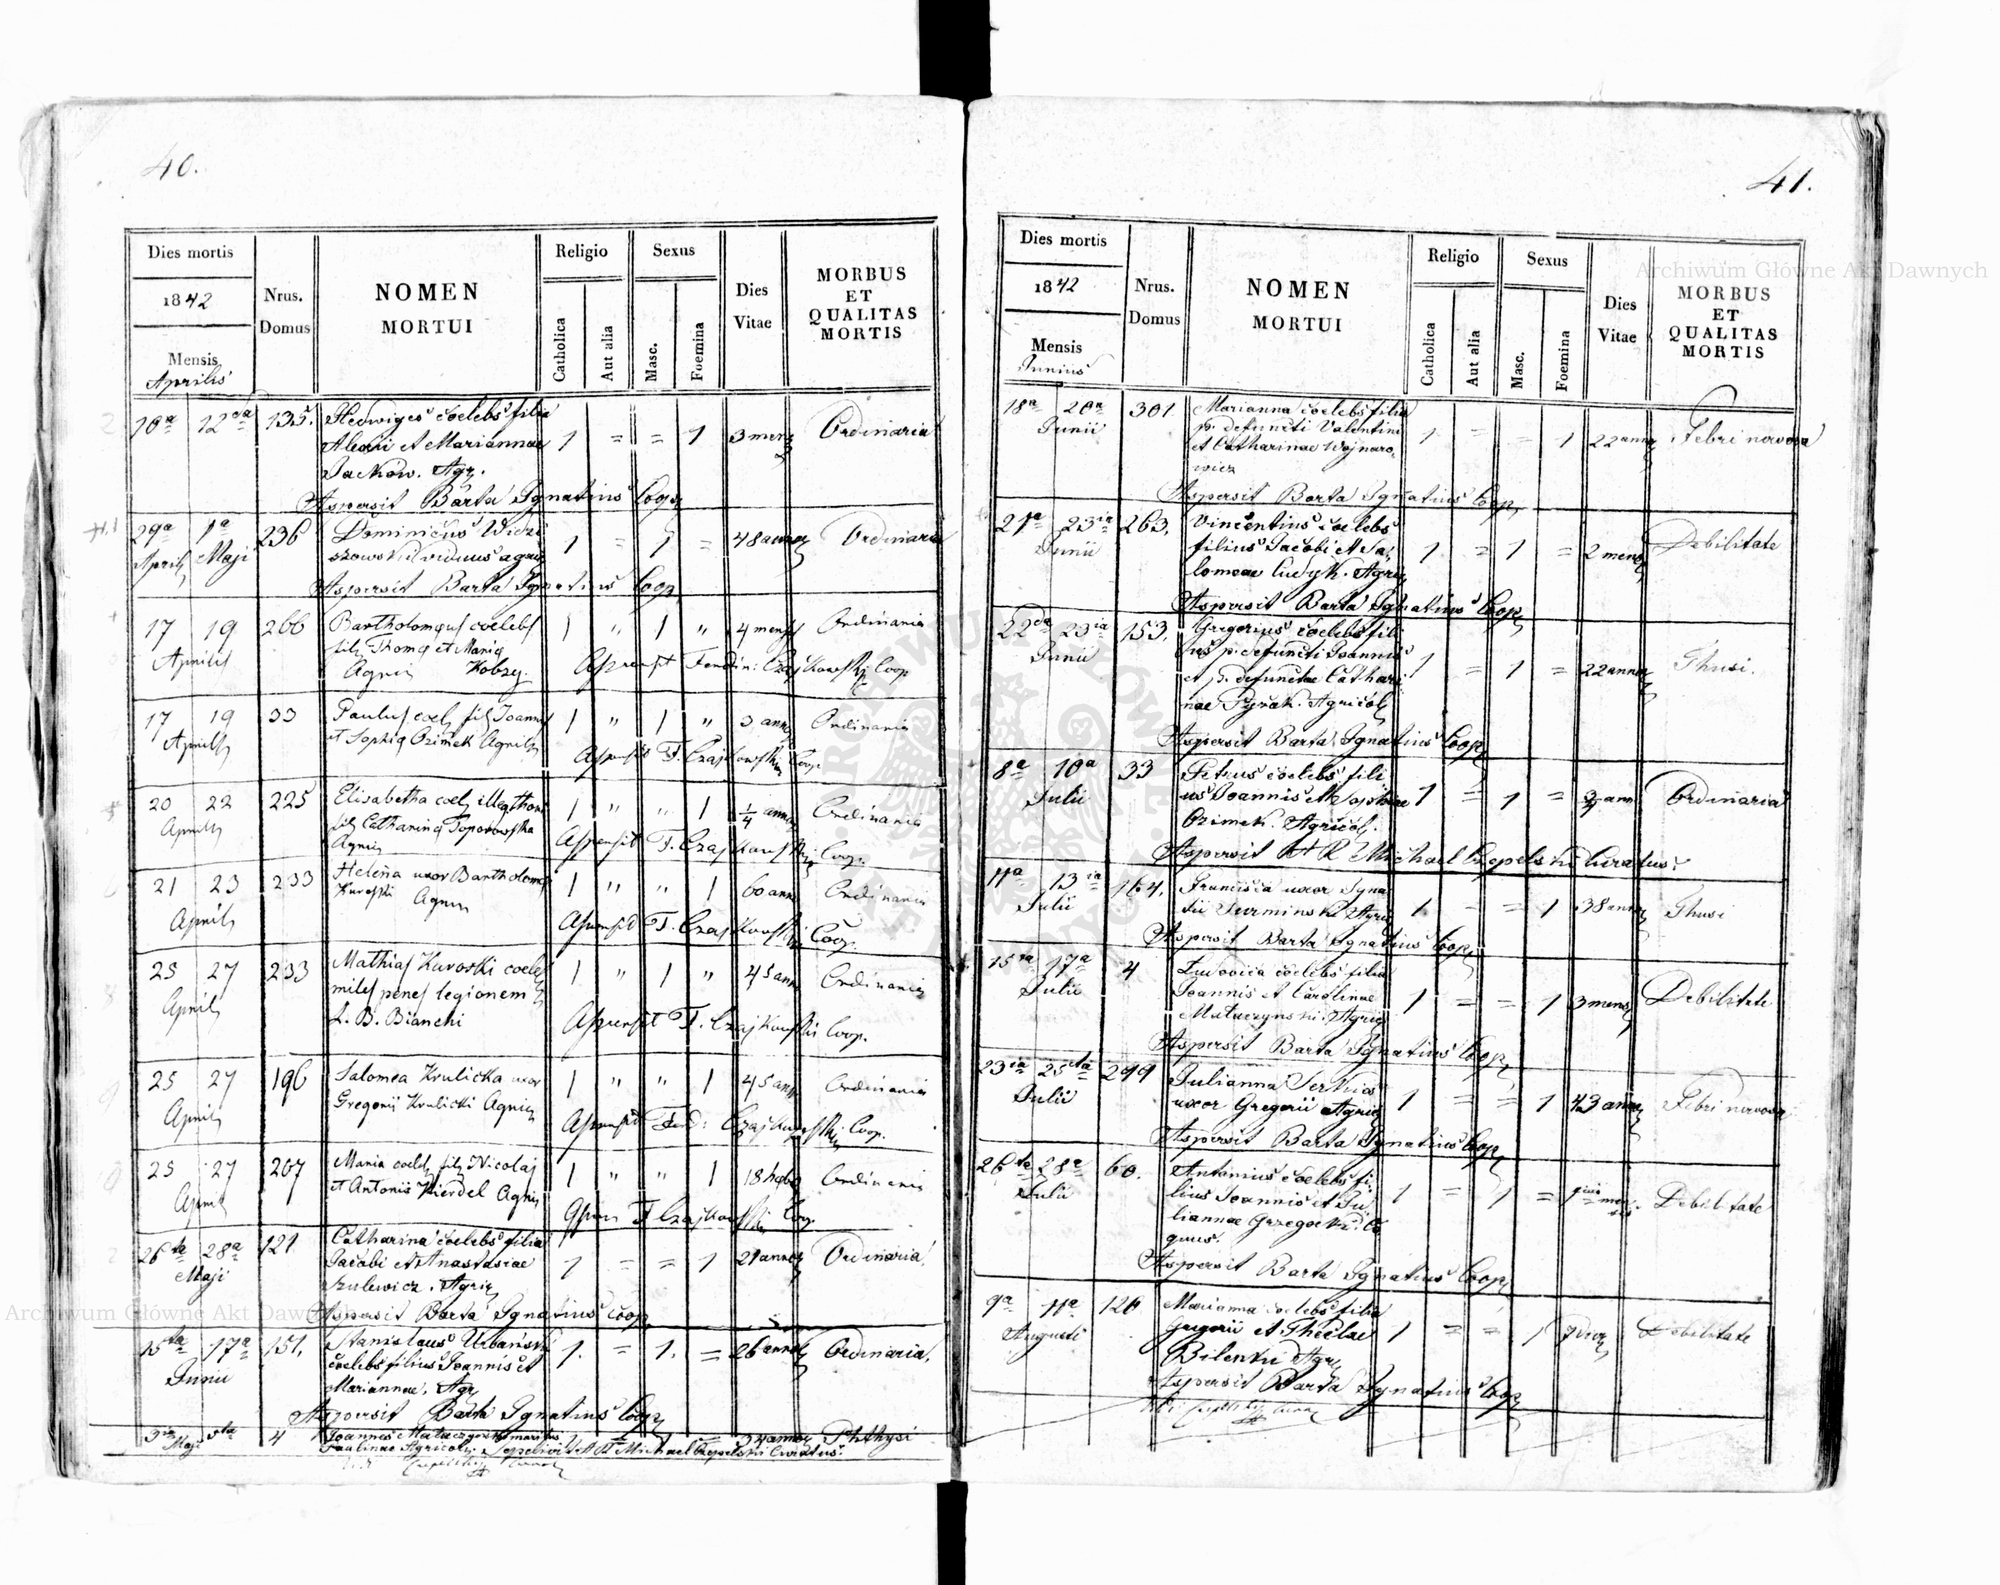 40.
Dies mortis
1842
Mensis
Aprilis
Nrus.
Domus
NOMEN
MORTUI
Religio
Catholica
Aut alia
Sexus
Masc.
Foemina
Dies
Vitae
MORBUS
ET
QUALITAS
MORTIS
10a 12da 135. Hedwiges coelebs filia
Alexii et Mariannae 1 = = 1 3 mens Ordinaria
Jackow. Agr.
Aspersit Barta Ignatius Coop.
29a 1a 236 Dominicus
Aprilis Maji viduus agric 1 = 1 = 48 annor Ordinaria
Aspersit Barta Ignatius Coop.
17 19 266 Bartholomeus coelebs 1 " 1 " 4 mens Ordinaria
Aprilis fil Thoma et Maria
Agric Kobzy. Aspersit Ferdin: Czajkowski Coop
17 19 33 Paulus coel fil Joannis 1 " 1 " 3 annor Ordinaria
Aprilis et Sophia Ozimek Agric
Aspersit F. Czajkowski Coop.
20 22 225 Elisabetha coel illegthoni 1 " " 1 1/4 annor Ordinaria
Aprilis fil Catharina Toporowska
Agric Aspersit F. Czajkowski Coop.
21 23 233 Helena uxor Bartholomei 1 " " 1 60 annor Ordinaria
Aprilis Kuroski Agric
Aspersit F. Czajkowski Coop.
25 27 233 Mathias Kuroski coelebs 1 " 1 " 45 annor Ordinaria
Aprilis miles penes legionem
L. B. Bianchi Aspersit F. Czajkowski Coop.
25 27 196 Salomea Krulicka uxor 1 " " 1 45 ann Ordinaria
Aprilis Gregorii Krulicki Agric
Aspersit Ferd: Czajkowski Coop.
25 27 207 Maria coel fil Nicolai 1 " " 1 18 Ordinaria
Aprilis et Antonii Kierdel Agric
Aspers F Czajkowski Coop.
26ta 28a 121 Catharina coelebs filia
Maji Jacobi et Anastasiae 1 = = 1 21 annor Ordinaria
Szulewicz. Agric
Aspersit Barta Ignatius Coop.
15ta 17a 151. Stanislaus Urbanski 1. = 1. = 26 annor Ordinaria.
Junii coelebs filius Joannis et
Mariannae. Agr
Aspersit Barta Ignatius Coop
3ia 5ta 4 Joannes maritus 34 annor Phthysi
Maji Paulinae Agricola. Sepelivit Michael Czepelski Curatus.
41.
Dies mortis
1842
Mensis
Junius
Nrus.
Domus
NOMEN
MORTUI
Religio
Catholica
Aut alia
Sexus
Masc.
Foemina
Dies
Vitae
MORBUS
ET
QUALITAS
MORTIS
18a 20a 301 Marianna coelebs filia
Junii p. defuncti Valentini 1 = = 1 22 annor Febri nervosa
et Catharinae Wojnaro,
wicz
Aspersit Barta Ignatius Coop,
21a 23ia 263. Vincentius coelebs
Junii filius Jacobi et Sa, 1 = 1 = 2 mens Debilitate
lomeae Cudyk. Agric
Aspersit Barta Ignatius Coop,
22da 23ia 153. Gregorius coelebs fili
Junii us p. defuncti Joannis 1 = 1 = 22 annor Thusi.
et p. defunctae Cathari
nae Pyrak. Agricol
Aspersit Barta Ignatius Coop
8a 10a 33 Petrus coelebs fili
Julii us Joannis et Sophiae 1 = 1 = ann Ordinaria
Ozimek. Agricol.
Aspersit Michael Czepelski Curatus.
11a 13ia 164. Francisca uxor Igna
Julii tii Surminski Agric 1 = = 1 38 annor Thusi
Aspersit Barta Ignatius Coop
15ta 17a 4 Ludovica coelebs filia
Julii Joannis et Carolinae 1 = = 1 3 mens Debilitate
Matuczynski. Agric
Aspersit Barta Ignatius Coop,
23ia 25ta 299 Julianna Serkis
Julii uxor Gregorii Agric 1 = = 1 43 annor Febri nervosa
Aspersit Barta Ignatius Coop,
26ta 28a 60. Antonius coelebs fi,
Julii lius Joannis et Ju, 1 = 1 = Debilitate
liannae Grzegocki.
Aspersit Barta Ignatius Coop,
9a 11a 126 Marianna coelebs filia
Augusti Gregorii et Theclae 1 = = 1 7 Debilitate
Bilenki Agr,
Aspersit Barta Ignatius Coop
Archiwum Główne Akt Dawnych
Archiwum Główne Akt Dawnych